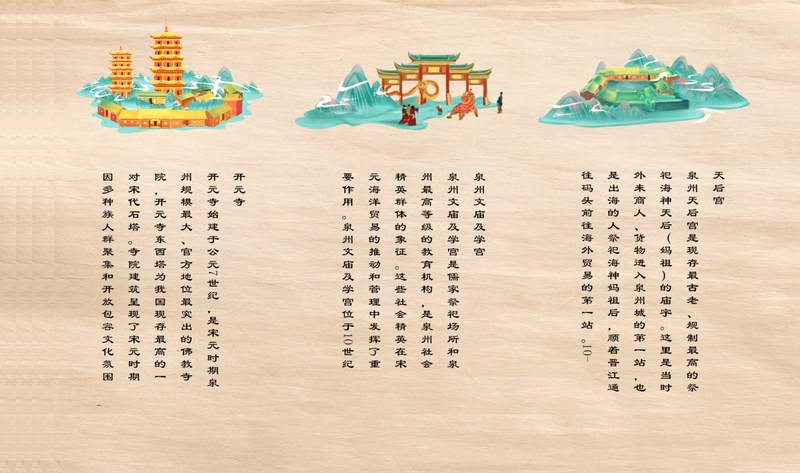 天后宫
泉州天后宫是现存最古老、规制最高的祭
祀海神天后(妈祖)的庙宇。这里是当时
外来商人、货物进入泉州城的第一站,也
是出海的人祭祀海神妈祖后,顺着晋江通
往码头前往海外贸易的第一站。10-
泉州文庙及学宫
泉州文庙及学宫是儒家祭祀场所和泉
州最高等级的教育机构,是泉州社会
精英群体的象征。这些社会精英在宋
元海洋贸易的推动和管理中发挥了重
要作用。泉州文庙及学宫位于10世纪
开元寺
开元寺始建于公元7世纪,是宋元时期泉
州规模最大、官方地位最突出的佛教寺
院,开元寺东西塔为我国现存最高的一
对宋代石塔。寺院建筑呈现了宋元时期
因多种族人群聚集和开放包容文化氛围